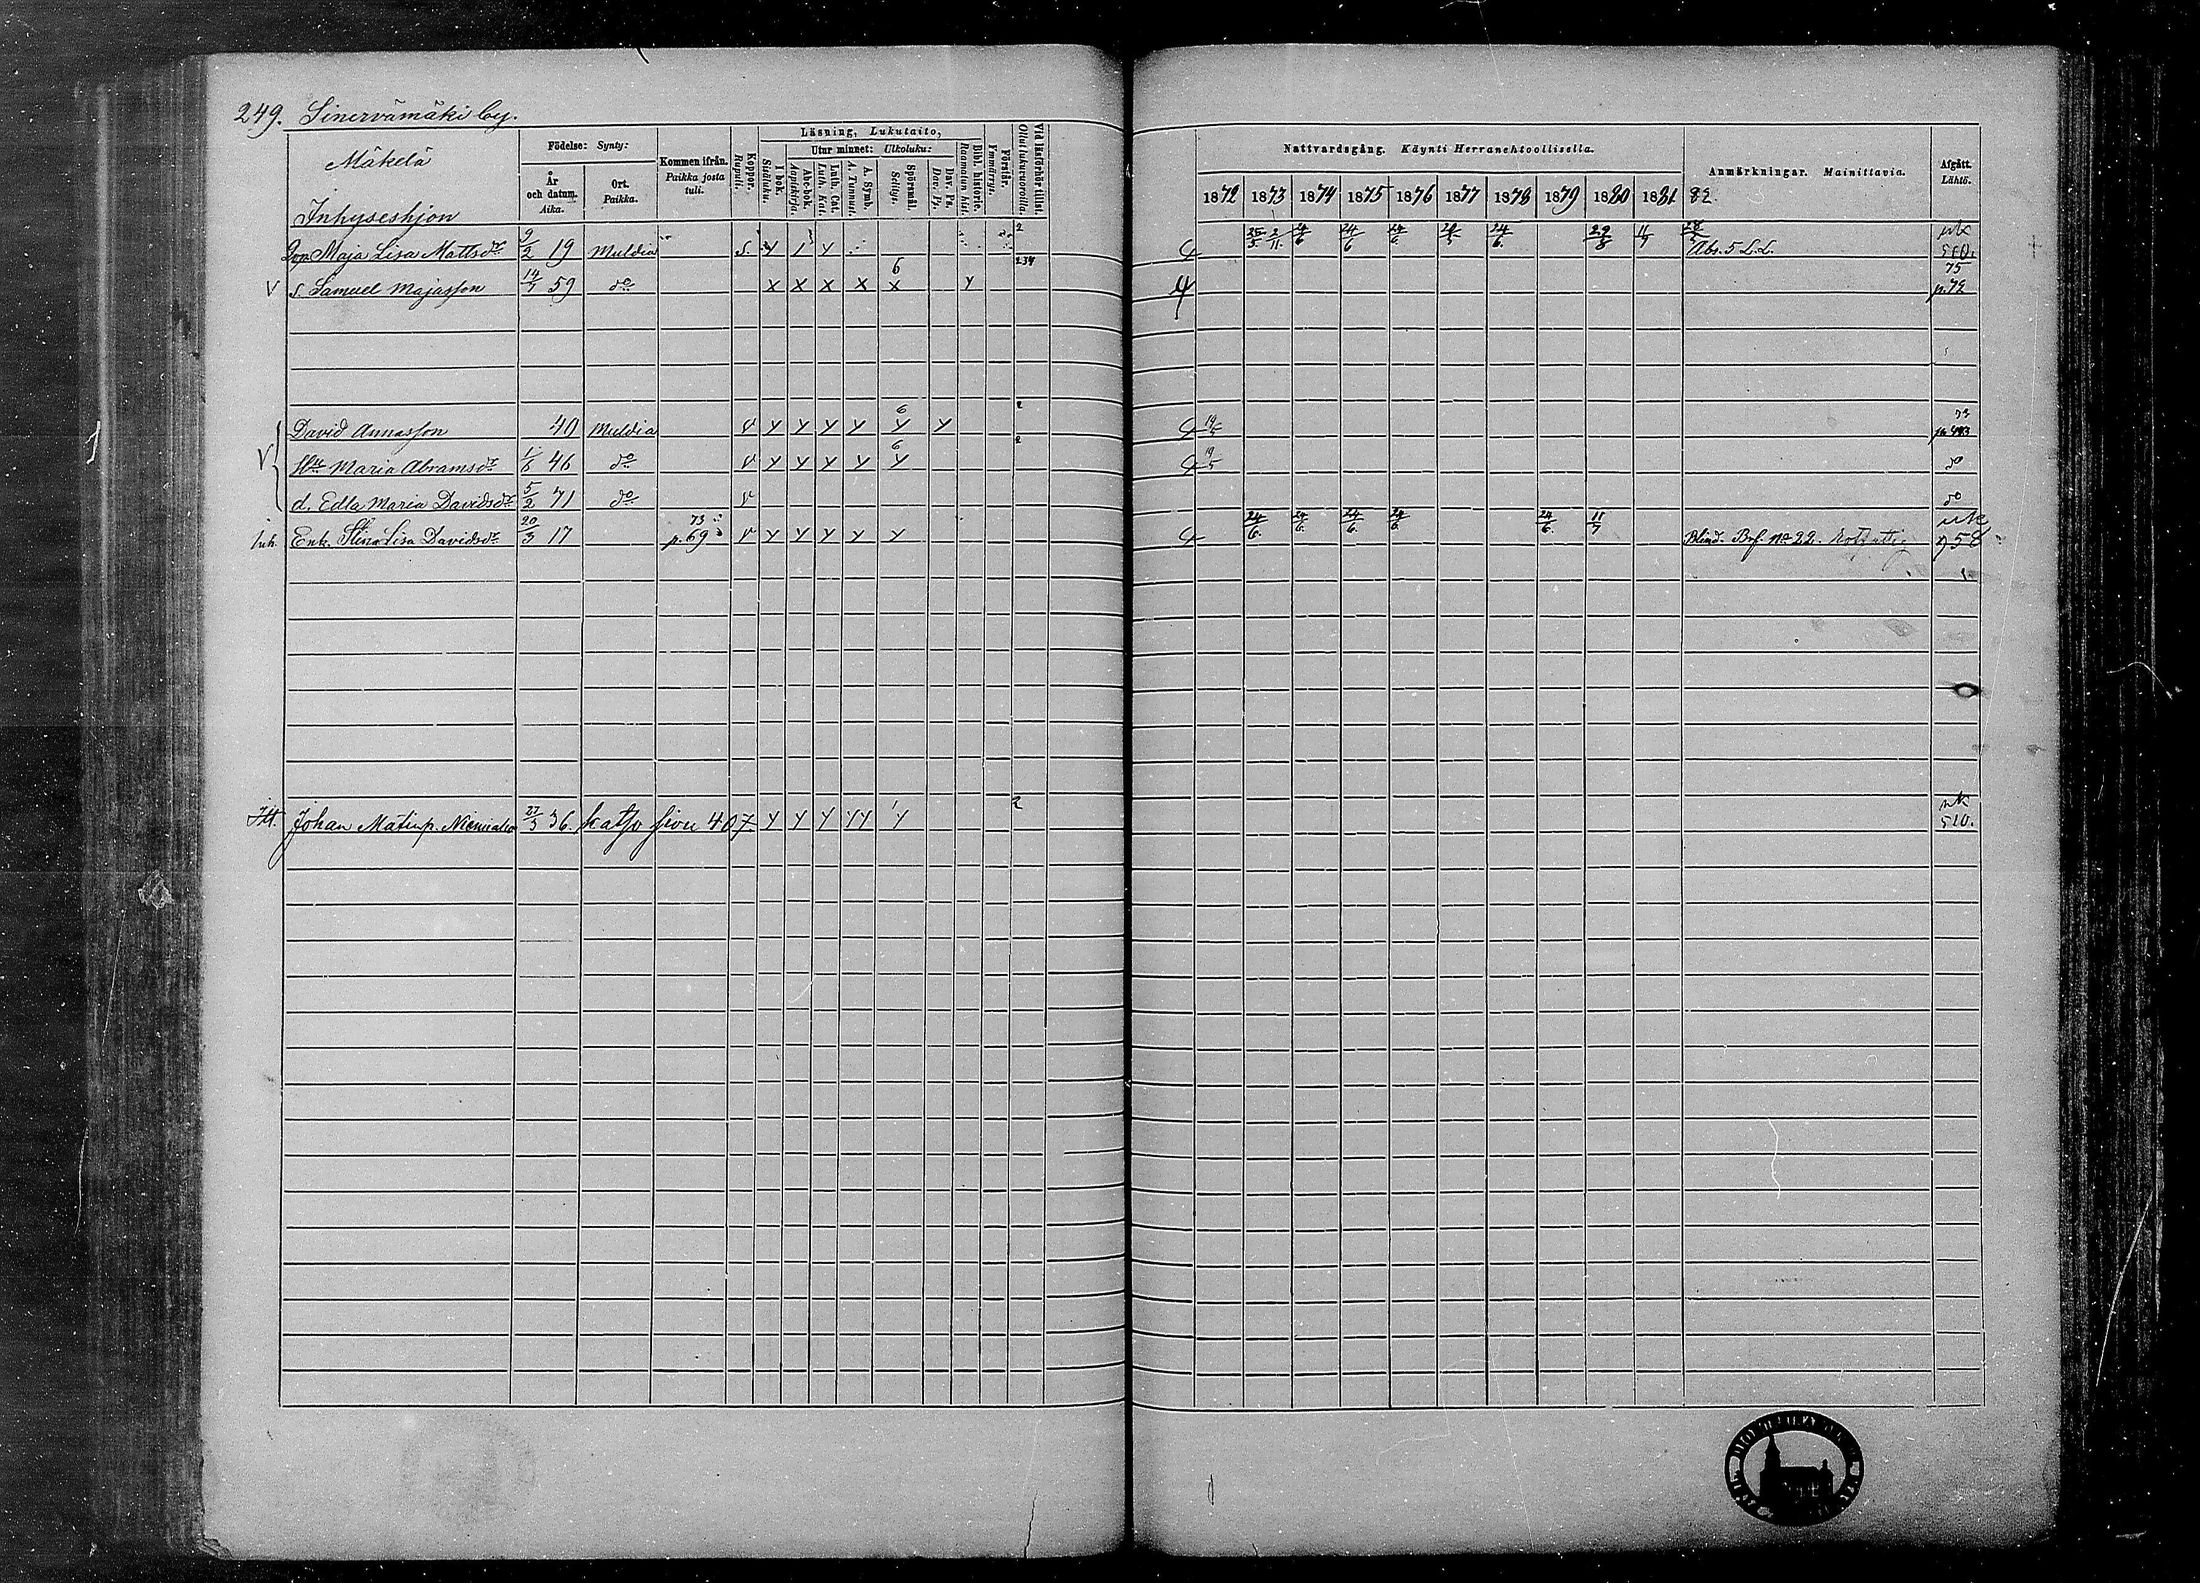 249. Sinervämäki by.
Mäkelä
Inhyseshjon
Födelse: Synty:
År och datum. Aika.
Ort. Paikka.
Kommen ifrån. Paikka josta tuli.
Koppor. Rupuli.
Läsning, Lukutaito,
I bok. Sisäluku.
Utur minnet: Ulkoluku:
Abc-bok. Aapiskirja.
Luth. Cat. Luth. Kat.
A. Symb. A. Tunnust.
Spörsmål. Selitys.
Dav. Ps. Dav. Ps.
Bibl. historie. Raamatun hist.
Förstår. Ymmärrys.
Vid läsförhör tillst. Ollut lukuvuoroilla.
Nattvardsgång. Käynti Herranehtoollisella.
1872 1873 1874 1875 1876 1877 1878 1879 1880 1881 82.
Anmärkningar. Mainittavia.
Afgått. Lähtö.
Maja Lisa Mattsdr 9/2 19 Muldia S. Y Y 2 4 24/6 24/6 24/6 24/6 29/8 11/7 Abs. 5 L.L.
V s. Samuel Majasson 14/7 59 do X X X X 6 X Y 234 4 75 p.72
David Annasson 40 Muldia V Y Y Y Y 6 Y Y 2 4 19/5 73
V Maria Abramsdr 1/6 46 do V Y Y Y Y 6 Y 2 4 19/5 do
d. Edla Maria Davidsdr 5/2 71 do V do
Inh. Enk. Stina Lisa Davidsdr 20/3 17 73 p.69 V Y Y Y Y Y 4 24/6. 24/6. 24/6. 24/6. 24/6. 11/7 Blind. Bref No 22. 758
Itt. Johan Matinp. 27/3 36. katso sivu 407 Y Y Y YY Y 2 510.